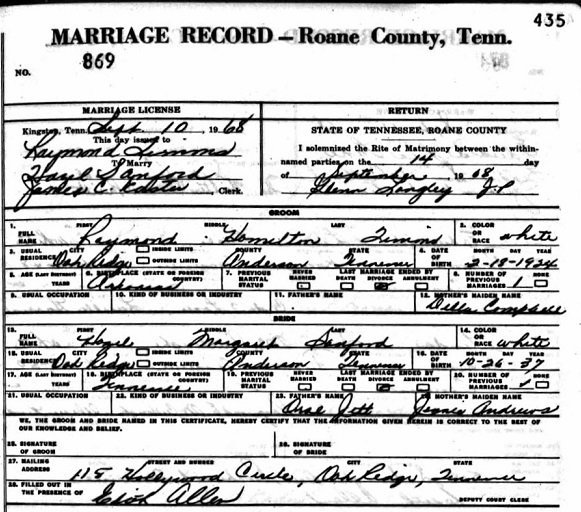 435
MARRIAGE RECORD — Roane County, Tenn.
NO. 869
MARRIAGE LICENSE
Kingston, Tenn. Sept. 10, 1968
This day issued to
Raymond Timmons
To Marry
Hazel Sanford
James C. Clerk.
RETURN
STATE OF TENNESSEE, ROANE COUNTY
I solemnized the Rite of Matrimony between the within-
named parties on the 14 day
of September 1968
Glenn Langley J.P.
GROOM
1. FULL NAME FIRST MIDDLE LAST 2. COLOR OR RACE
Raymond Hamilton white
3. USUAL RESIDENCE CITY INSIDE LIMITS OUTSIDE LIMITS COUNTY STATE 4. DATE OF BIRTH MONTH DAY YEAR
Oak Ridge Anderson Tennessee 2-18-1924
5. AGE (Last Birthday) YEARS 6. BIRTHPLACE (STATE OR FOREIGN COUNTRY) 7. PREVIOUS MARITAL STATUS NEVER MARRIED LAST MARRIAGE ENDED BY DEATH DIVORCE ANNULMENT 8. NUMBER OF PREVIOUS MARRIAGES NONE
Arkansas 1
9. USUAL OCCUPATION 10. KIND OF BUSINESS OR INDUSTRY 11. FATHER'S NAME 12. MOTHER'S MAIDEN NAME
Della Campbell
BRIDE
13. FULL NAME FIRST MIDDLE LAST 14. COLOR OR RACE
Hazel Margaret Sanford white
15. USUAL RESIDENCE CITY INSIDE LIMITS OUTSIDE LIMITS COUNTY STATE 16. DATE OF BIRTH MONTH DAY YEAR
Oak Ridge Anderson Tennessee 10-26-37
17. AGE (Last Birthday) YEARS 18. BIRTHPLACE (STATE OR FOREIGN COUNTRY) 19. PREVIOUS MARITAL STATUS NEVER MARRIED LAST MARRIAGE ENDED BY DEATH DIVORCE ANNULMENT 20. NUMBER OF PREVIOUS MARRIAGES NONE
Tennessee 1
21. USUAL OCCUPATION 22. KIND OF BUSINESS OR INDUSTRY 23. FATHER'S NAME 24. MOTHER'S MAIDEN NAME
Jett Andrews
WE, THE GROOM AND BRIDE NAMED IN THIS CERTIFICATE, HEREBY CERTIFY THAT THE INFORMATION GIVEN HEREIN IS CORRECT TO THE BEST OF
OUR KNOWLEDGE AND BELIEF.
25. SIGNATURE OF GROOM 26. SIGNATURE OF BRIDE
27. MAILING ADDRESS STREET AND NUMBER CITY STATE
115 Hollywood Circle, Oak Ridge, Tennessee
28. FILLED OUT IN THE PRESENCE OF Allen DEPUTY COURT CLERK